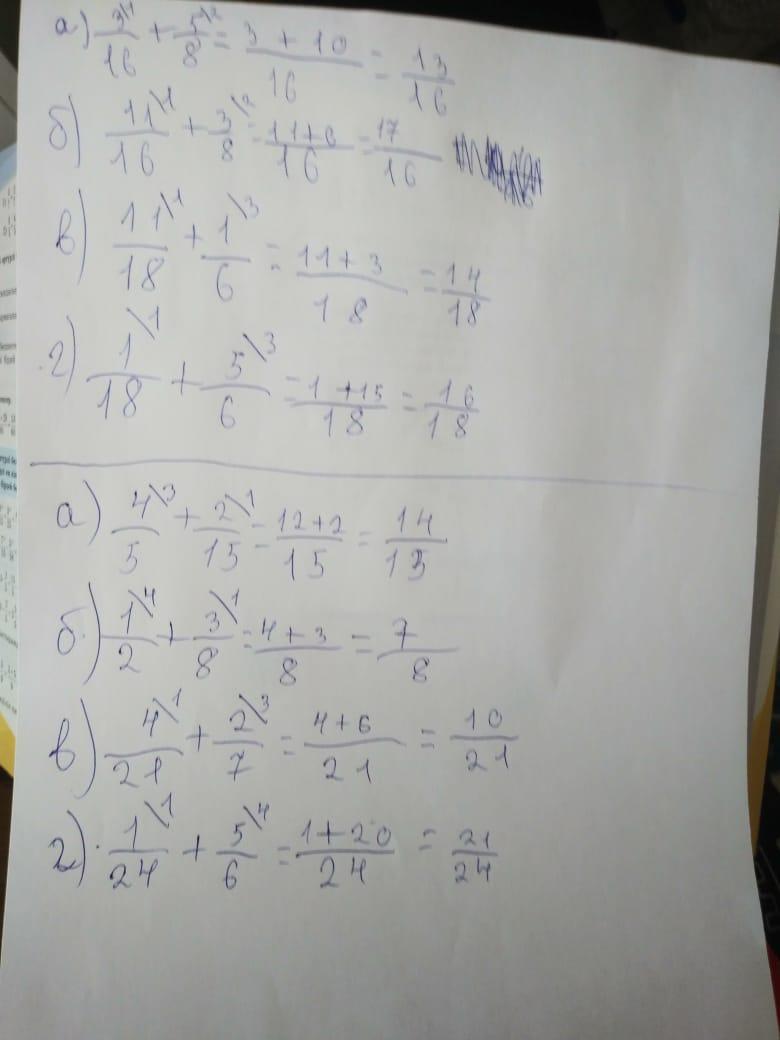 а) 3\1/16 + 5\2/8 = 3 + 10/16 = 13/16
б) 11\1/16 + 3\2/8 = 11+6/16 = 17/16
в) 11\1/18 + 1\3/6 = 11+3/18 = 14/18
г) 1\1/18 + 5\3/6 = 1+15/18 = 16/18
а) 4\3/5 + 2\1/15 = 12+2/15 = 14/15
б) 1\4/2 + 3\1/8 = 4+3/8 = 7/8
в) 4\1/21 + 2\3/7 = 4+6/21 = 10/21
г) 1\1/24 + 5\4/6 = 1+20/24 = 21/24